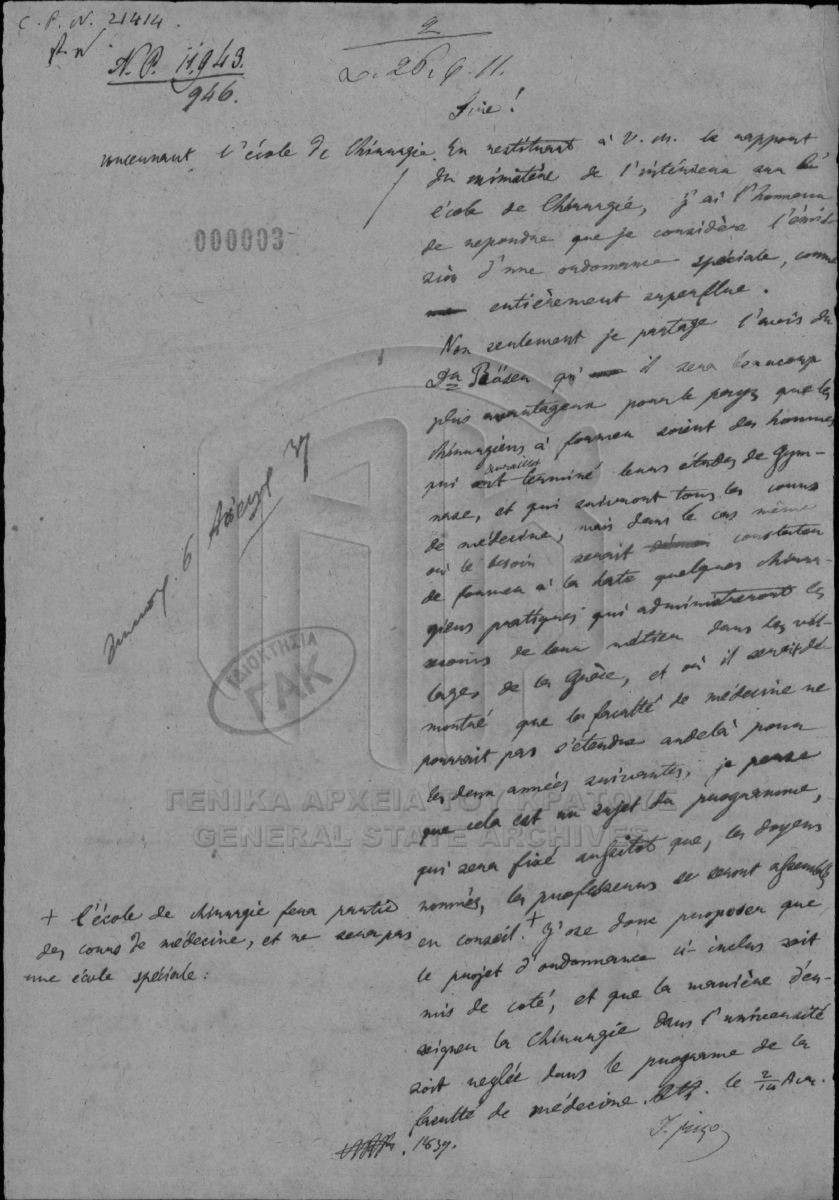 C. P. N. 21414.
N. P. 11.943.
946.
2
26. 6. 11.
Sire!
concernant l'école de Chirurgie.
En restituant à V. M. le rapport
du ministère de l'intérieur sur l'
école de Chirurgie, j'ai l'honneur
de repondre que je considère l'émis-
sion d'une ordonnance spéciale, comme
entièrement superflue.
Non seulement je partage l'avis du
Dr Röser qu' il sera beaucoup
plus avantageux pour le pays que les
Chirurgiens à former soient des hommes
qui auraient terminé leurs études de Gym-
nase, et qui suivront tous les cours
de médecine, mais dans le cas même
où le besoin serait constaté
de former à la hate quelques chirur-
giens pratiques qui administreront les
secours de leur métier dans les vil-
lages de la Grèce, et où il serait dé
montré que la faculté de médecine ne
pourrait pas s'étendre audelà pour
les deux années suivantes, je pense
que cela est un sujet du programme,
qui sera fixé aussitot que, les doyens
nommés, les professeurs se seront assemblés
en conseil. + J'ose donc proposer que
le projet d'ordonnance ci-inclus soit
mis de coté, et que la manière d'en-
seigner la Chirurgie dans l'université
soit reglée dans le programe de la
faculté de médecine. Ath. le 2/14 Avr.
1837.
+ l'école de chirurgie fera partie
des cours de médecine, et ne sera pas
une école spéciale:
000003
6 37
ΙΔΙΟΚΤΗΣΙΑ
ΓΑΚ
ΓΕΝΙΚΑ ΑΡΧΕΙΑ ΤΟΥ ΚΡΑΤΟΥΣ
GENERAL STATE ARCHIVES